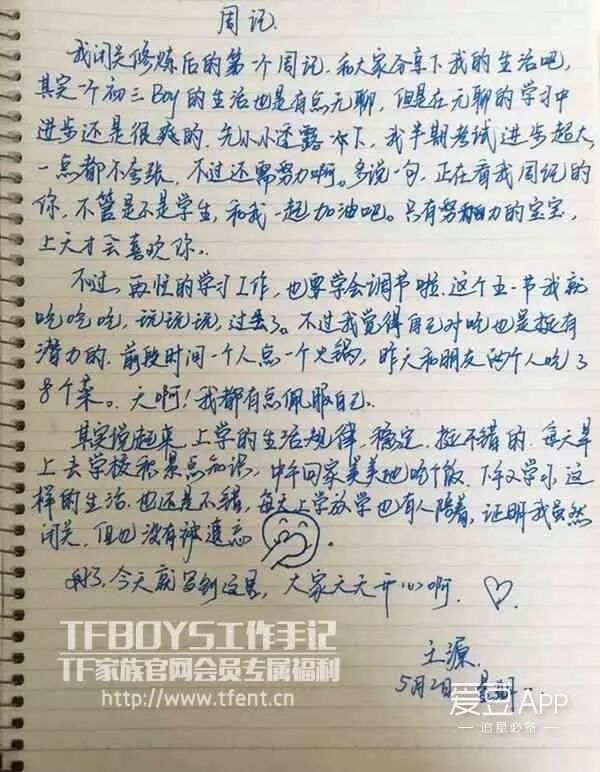 周记.
我闭关修炼后的第一个周记.和大家分享下我的生活吧,
其实一个初三Boy的生活也是有点无聊,但是在无聊的学习中
进步还是很爽的.先小小透露一下,我半期考试进步超大,
一点都不夸张,不过还需努力啊。多说一句,正在看我周记的
你,不管是不是学生,和我一起加油吧。只有努力的宝宝,
上天才会喜欢你。
不过,再忙的学习工作,也要学会调节啦.这个五一节我就
吃吃吃,玩玩玩,过去了。不过我觉得自己对吃也是挺有
潜力的.前段时间一个人点一个火锅,昨天和朋友两个人吃了
8个菜。天啊!我都有点佩服自己.
其实说起来,上学的生活规律,稳定,挺不错的.每天早
上去学校积累点知识,中午回家美美地吃个饭.下午又学习,这
样的生活.也还是不错,每天上学放学也有人陪着,证明我虽然
闭关,但也没有被遗忘。
好了,今天就写到这里,大家天天开心啊.
王源.
5月2日
TFBOYS工作手记
TF家族官网会员专属福利
http://www.tfent.cn
爱豆APP
追星必备